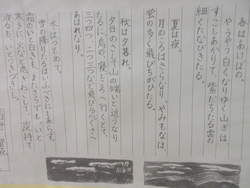 春はあけぼの。
やうやう白くなりゆく山ぎは、
すこしあかりて、紫だちたる雲の
細くたなびきたる。
夏は夜。
月のころはさらなり、やみもなほ、
蛍の多く飛びちがひたる。
秋は夕暮れ。
夕日のさして山の端いと近うなり
たるに、烏の寝どころへ行くとて、
三つ四つ、二つ三つなど飛び急ぐさへ
あはれなり。
冬はつとめて。
雪の降りたるは、いふべきにもあらず、
霜のいと白きも、またさらでもいと
寒きに、火など急ぎおこして、炭持て